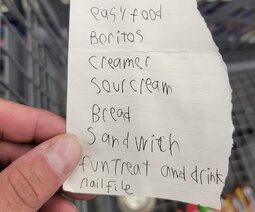 easy food
Beritos
creamer
sourcream
Bread
Sandwich
fun Treat and drink
nail file